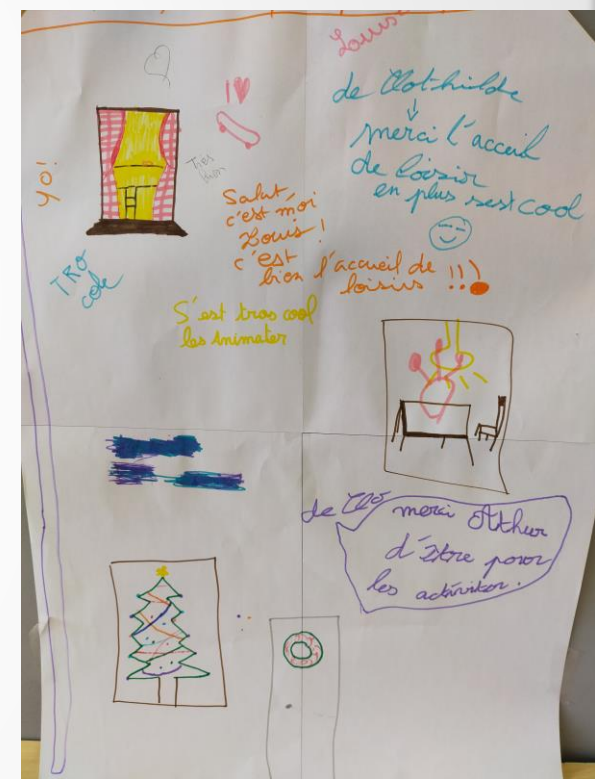 Louis
de Clothilde
merci l'acceuil
de loisir
en plus sest cool
I
YO!
Tres
bien
Salut
c'est moi
Louis !
c'est
bien l'accueil de
loisirs !!!
TRO
cole
S'est tros cool
les Animater
de Clo
merci Arthur
d'être
les